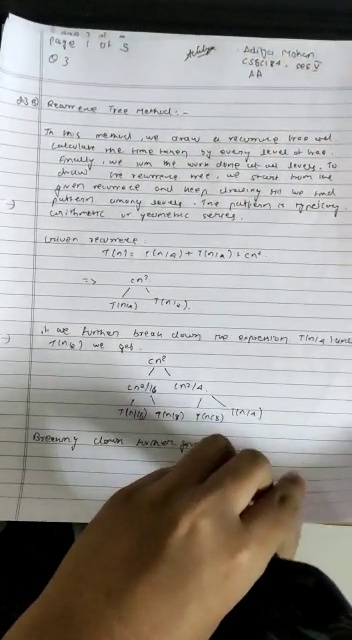 Page 1 of 5
Q 3
Aditya Mohan
CSE
AA
Recurrence Tree Method :-
In this method, we draw a recurrence tree and
calculate the time taken by every level of tree.
Finally, we sum the work done at all levels. To
draw the recurrence tree, we start from the
given recurrence and keep drawing till we find
pattern among levels. The pattern is typically
arithmetic or geometric series.
Given recurrence
T(n) = T(n/4) + T(n/2) + cn²
=> cn²
T(n/4) T(n/2)
If we further break down the expression T(n/4) and
T(n/2) we get
cn²
cn²/16 cn²/4
T(n/16) T(n/8) T(n/8) T(n/4)
Breaking down further